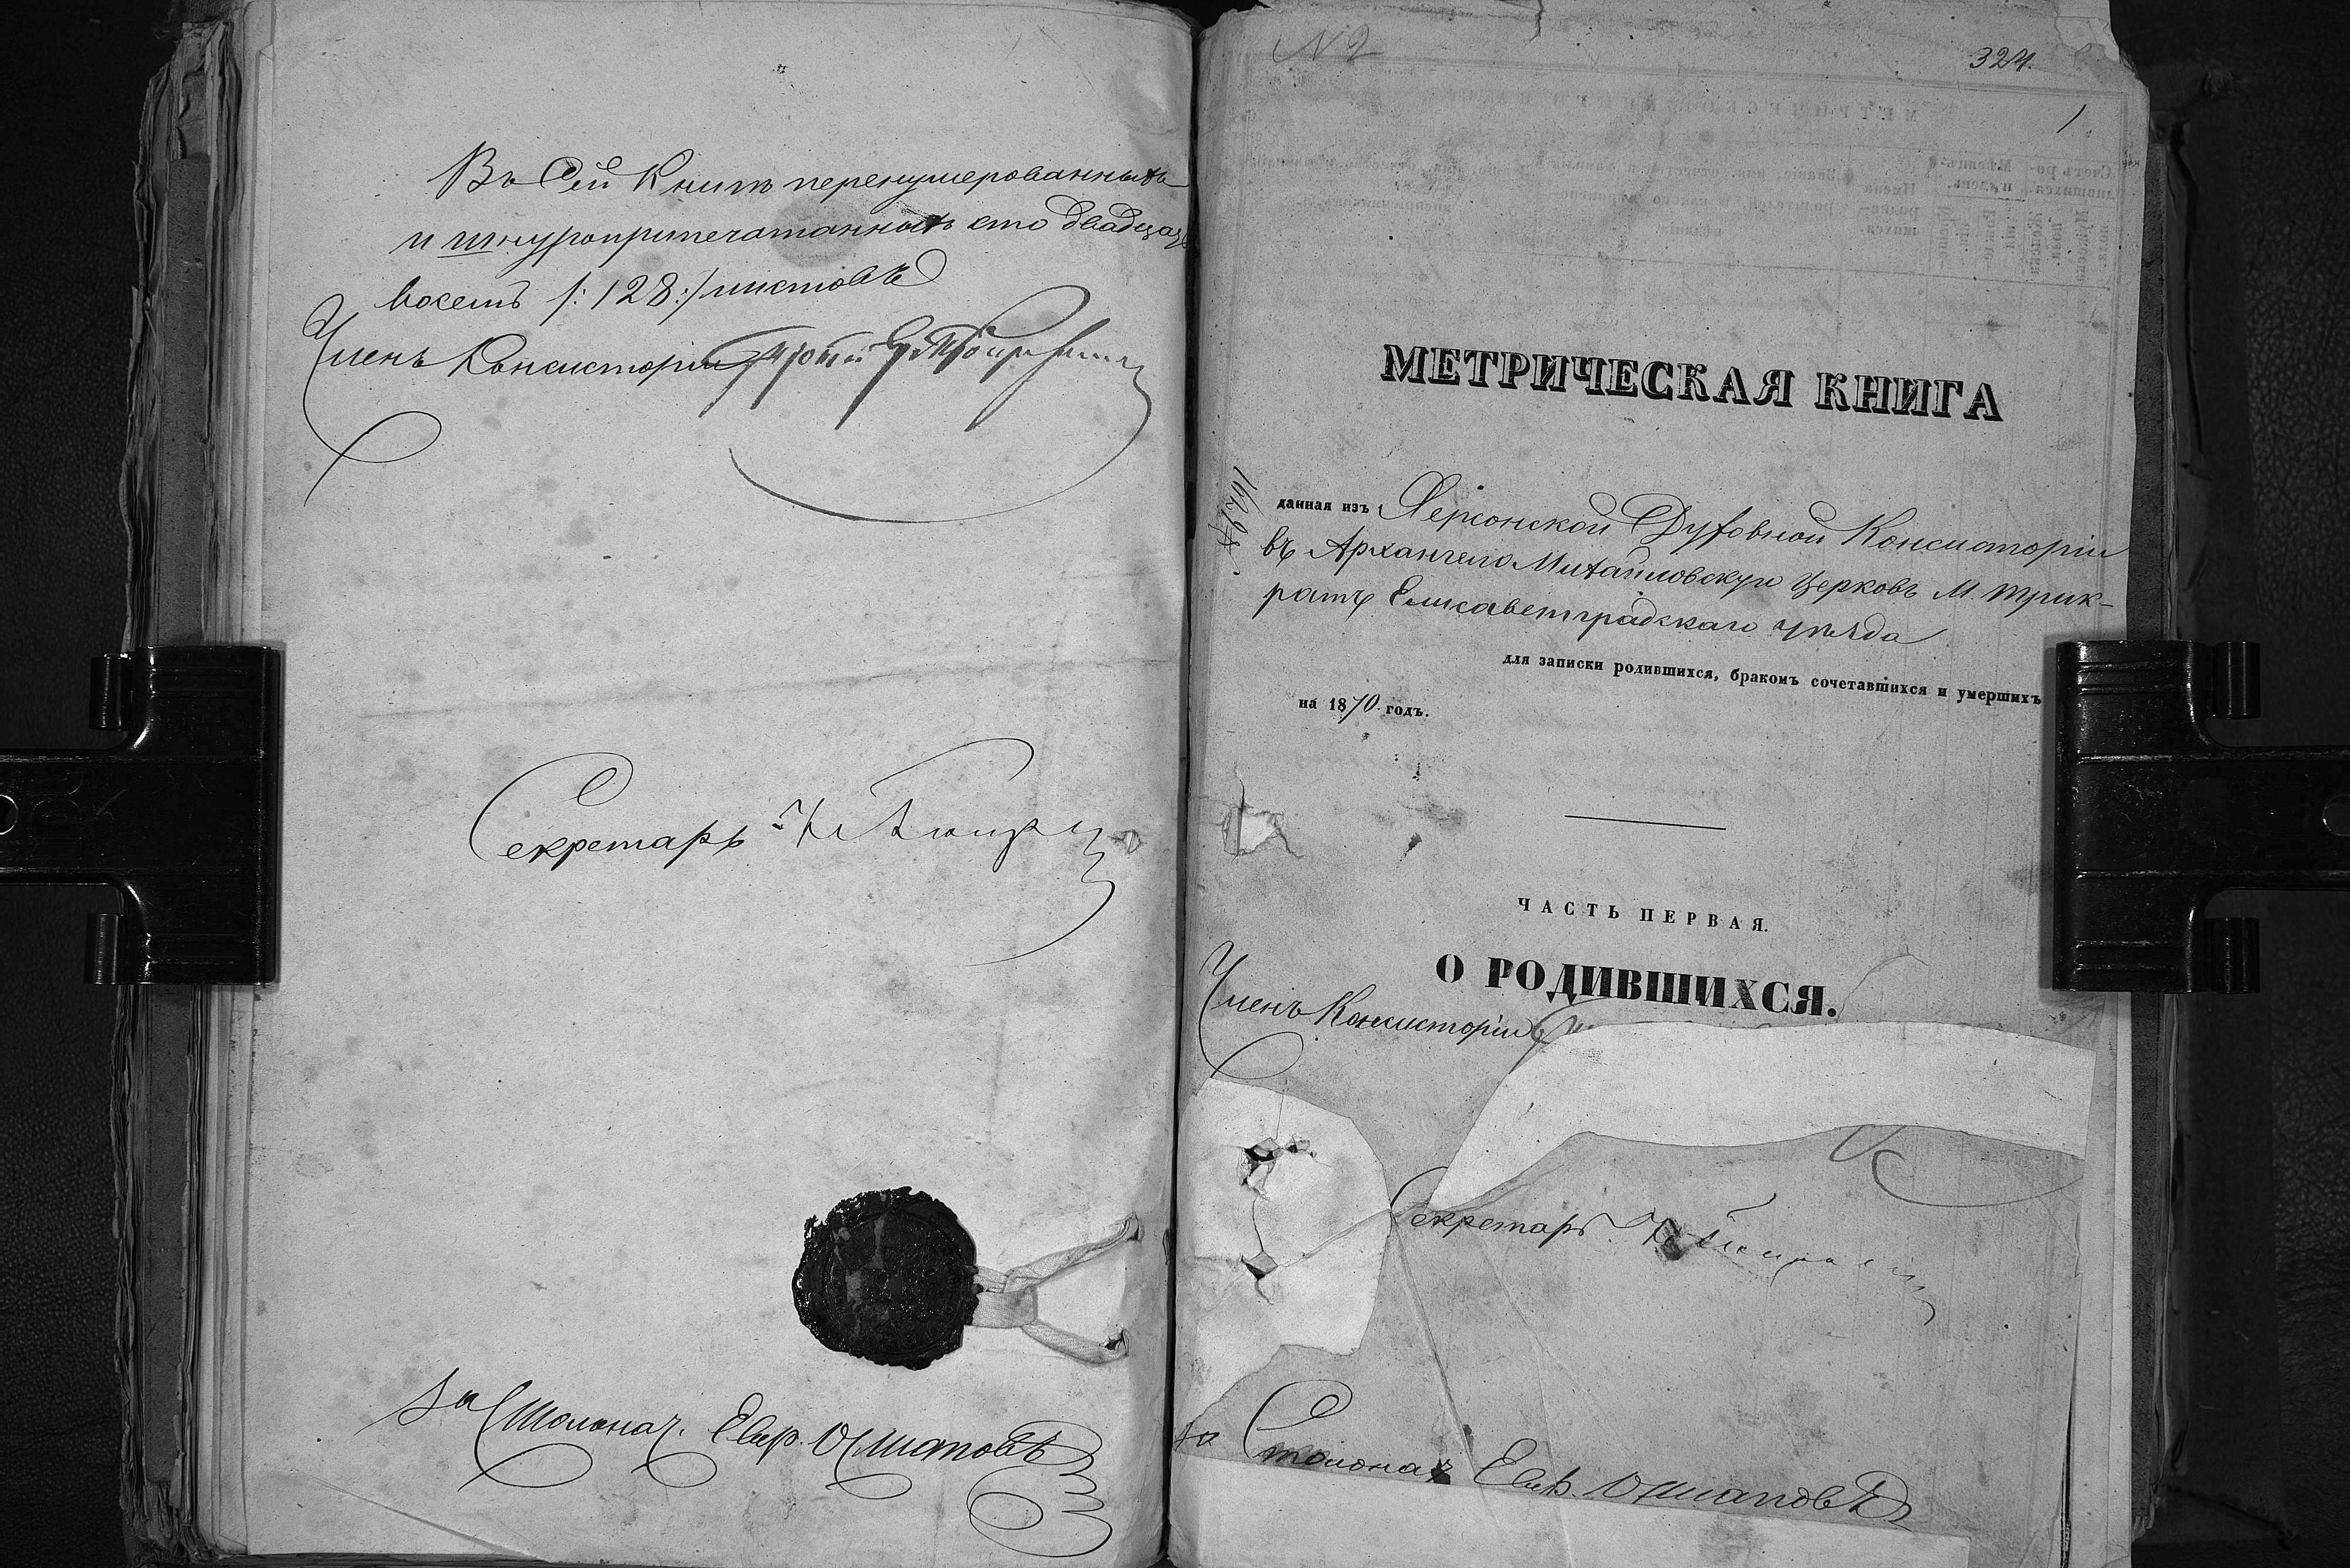 Въ Сей Книгѣ перенумерованныхъ
и шнуроприпечатанныхъ сто двадцать
восемь /:128:/ листовъ
Членъ Консисторіи
Секретарь
За Столонач. Евф. Остаповъ
N 2
324.
1
МЕТРИЧЕСКАЯ КНИГА
данная изъ Херсонской Духовной Консисторіи
въ Архангело Михайловскую церковь М. Трик-
ратъ Елисаветградскаго уѣзда
для записки родившихся, бракомъ сочетавшихся и умершихъ
на 1870 годъ.
ЧАСТЬ ПЕРВАЯ.
О РОДИВШИХСЯ.
Членъ Консисторіи
Секретарь
За Столонач Евф. Остаповъ